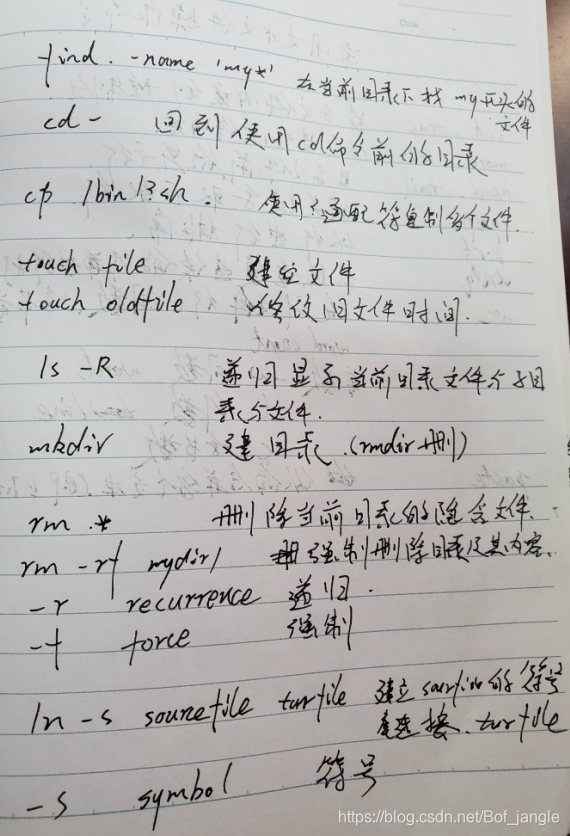 find . -name 'my*' 在当前目录下找 my开头的
文件
cd - 回到使用cd命令前的目录
cp /bin/?sh . 使用?通配符复制多个文件.
touch file 建空文件
touch oldfile 修改旧文件时间.
ls -R 递归显示当前目录文件个子目
录个文件.
mkdir 建目录.(rmdir 删)
rm .* 删除当前目录的隐含文件.
rm -rf mydir/ 强制删除目录及其内容.
-r recurrence 递归.
-f force 强制
ln -s sourcefile turfile 建立 的符号
连接.turfile
-s symbol 符号
https://blog.csdn.net/Bof_jangle